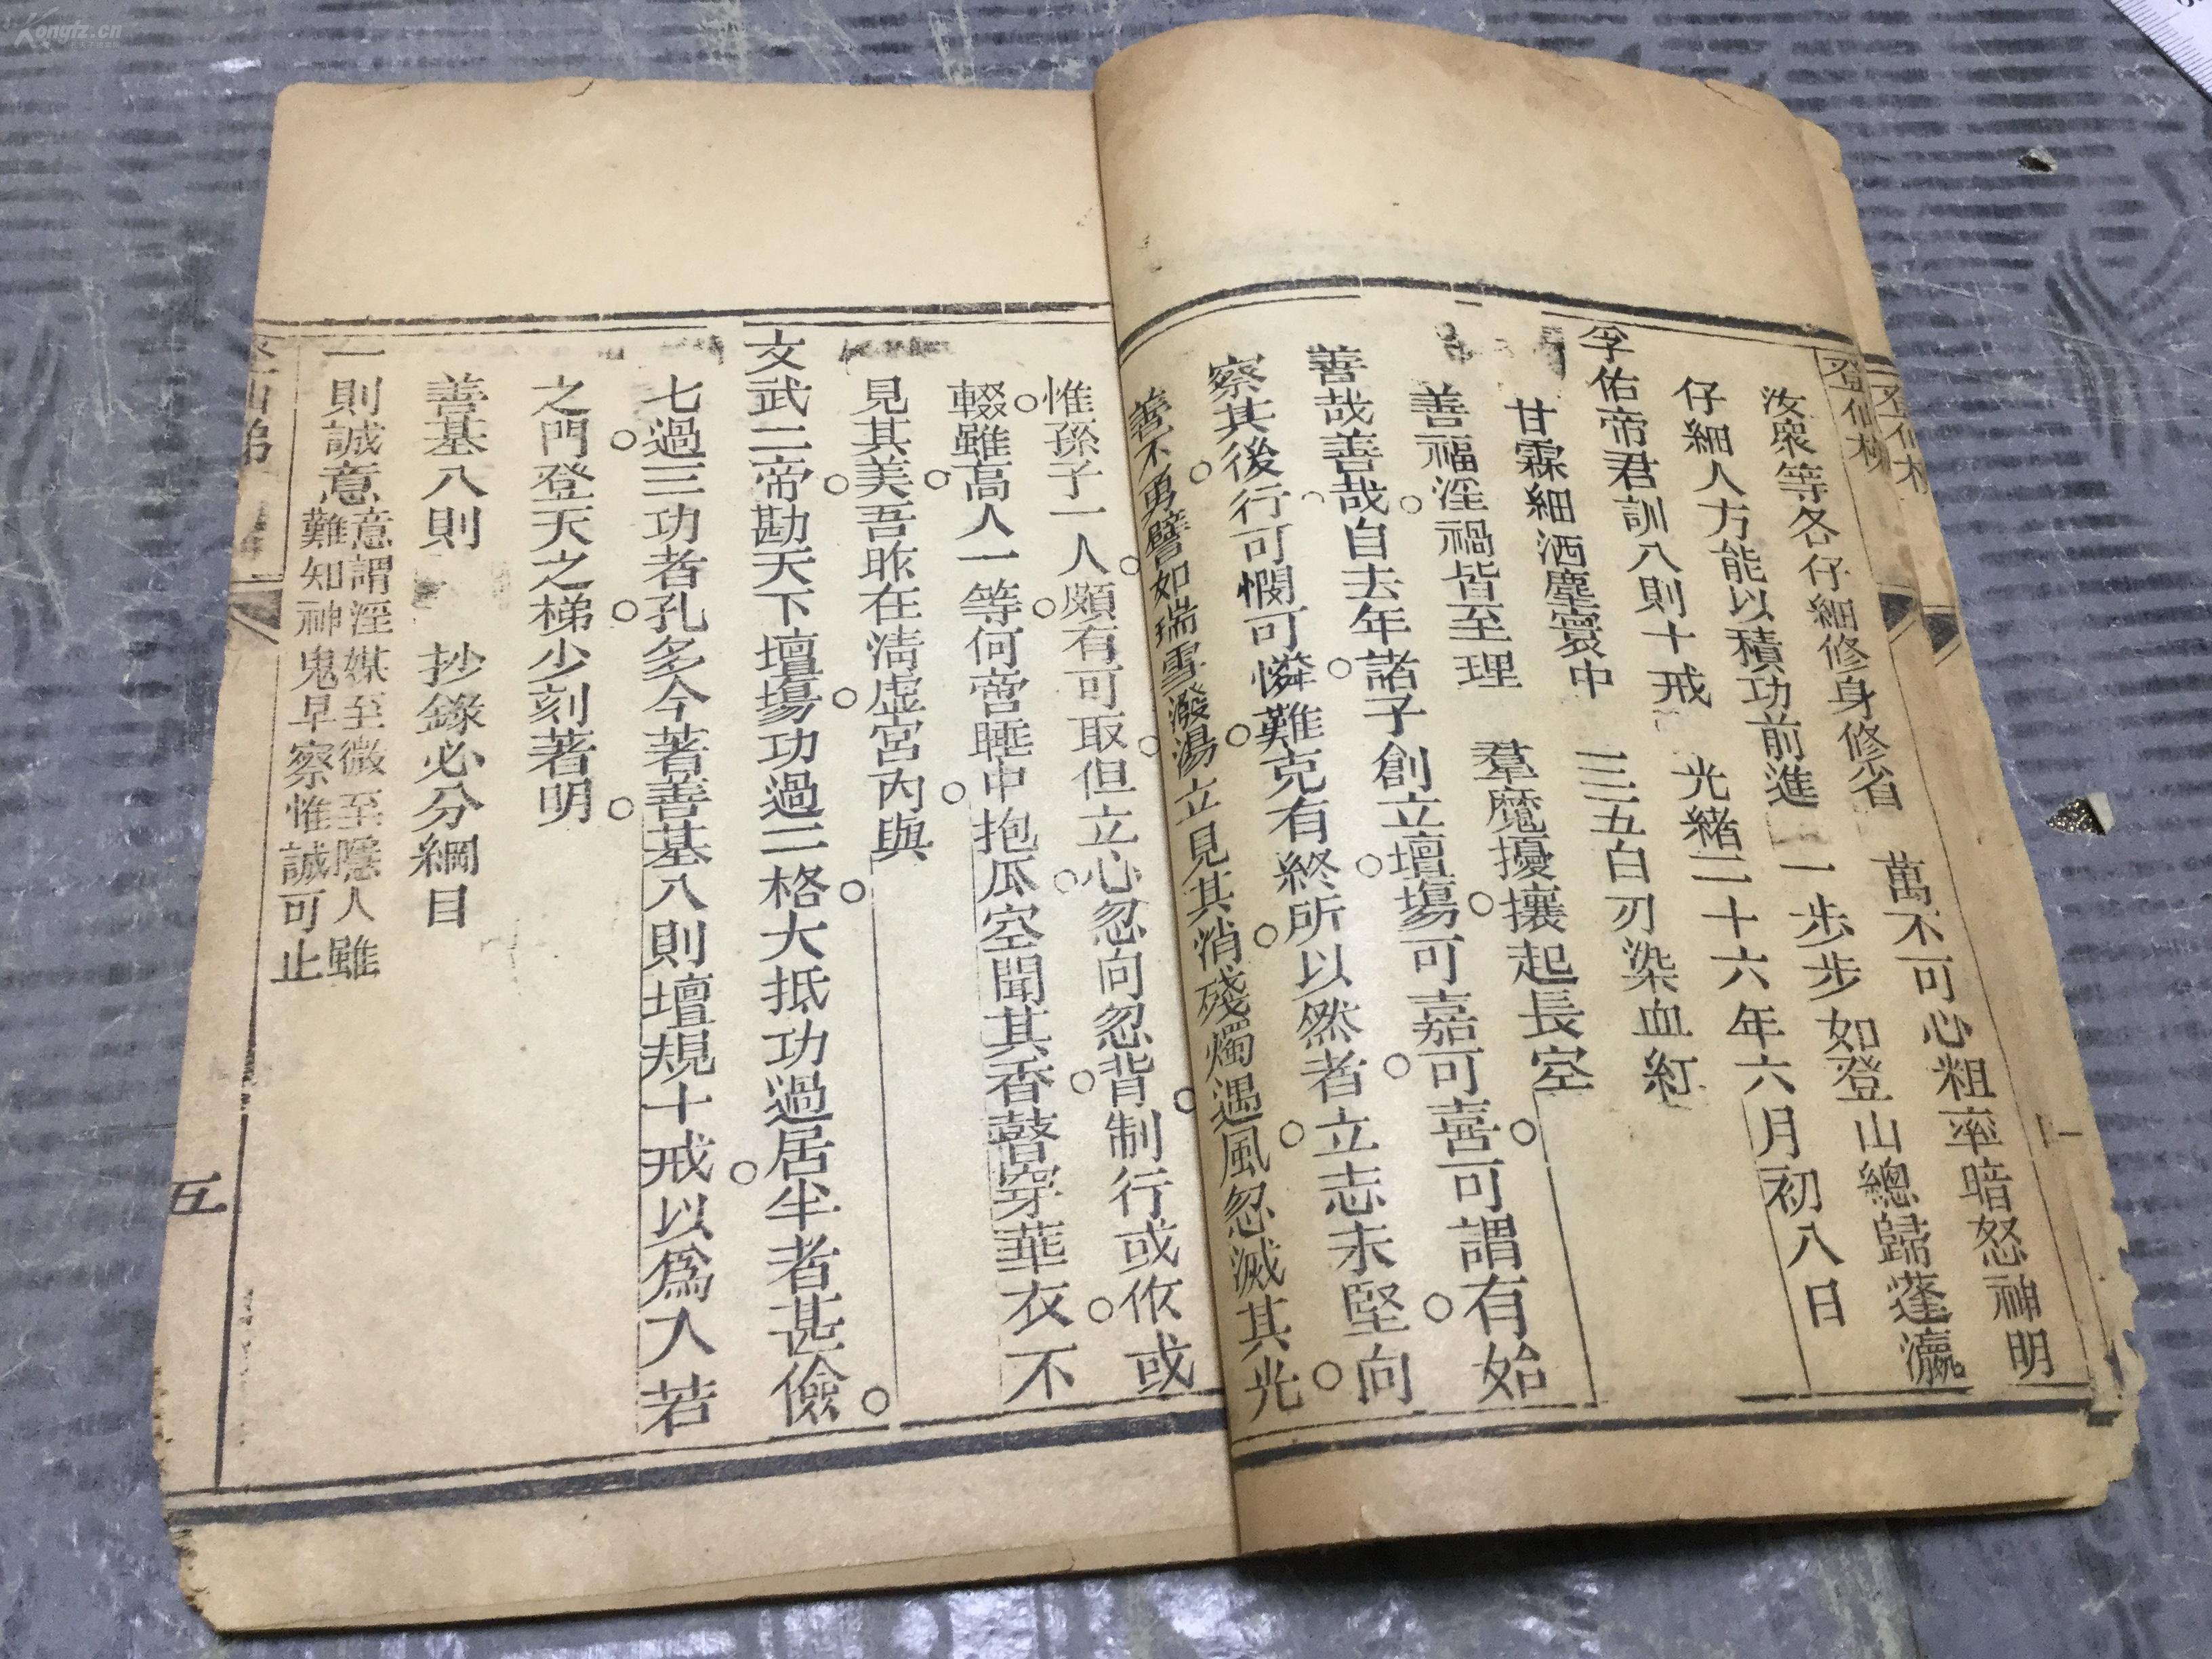 登仙梯
汝衆等各仔細修身修省　萬不可心粗率暗怒神明
仔細人方能以積功前進　一步步如登山總歸蓬瀛
孚佑帝君訓八則十戒　光緒二十六年六月初八日
甘霖細洒塵寰中　三五白刃染血紅
善福淫禍皆至理　羣魔擾攘起長空
善哉善哉自去年諸子創立壇場可嘉可喜可謂有始
察其後行可憫可憐難克有終所以然者立志未堅向
善不勇譬如瑞雪潑湯立見其消殘燭遇風忽滅其光
惟孫子一人頗有可取但立心忽向忽背制行或攸或
輟雖高人一等何啻睡中抱瓜空聞其香瞽穿華衣不
見其美吾昨在淸虛宮內與
文武二帝勘天下壇場功過二格大抵功過居半者甚儉
七過三功者孔多今著善基八則壇規十戒以爲入若
之門登天之梯少刻著明
善基八則　抄錄必分綱目
一則誠意意謂淫媒至微至隱人雖
難知神鬼早察惟誠可止
五
Kongfz.cn